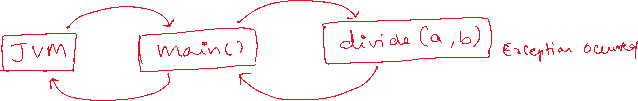 JVM
main()
divide(a,b)
Exception occurred